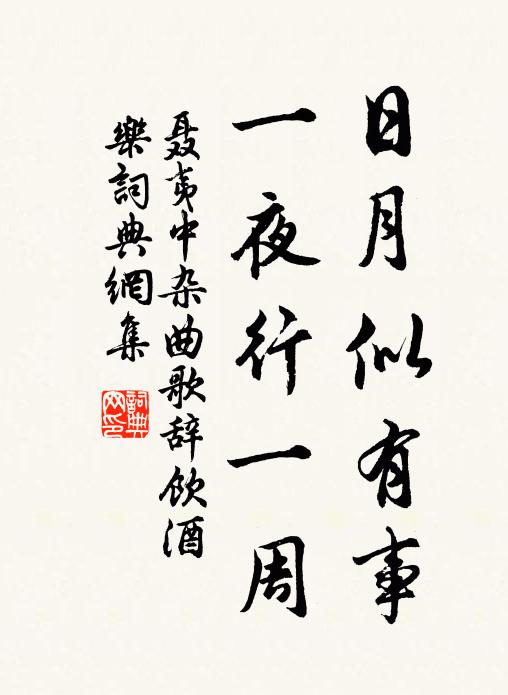 日月似有事
一夜行一周
聂夷中杂曲歌辞饮酒
樂詞典網集
詞典
网印